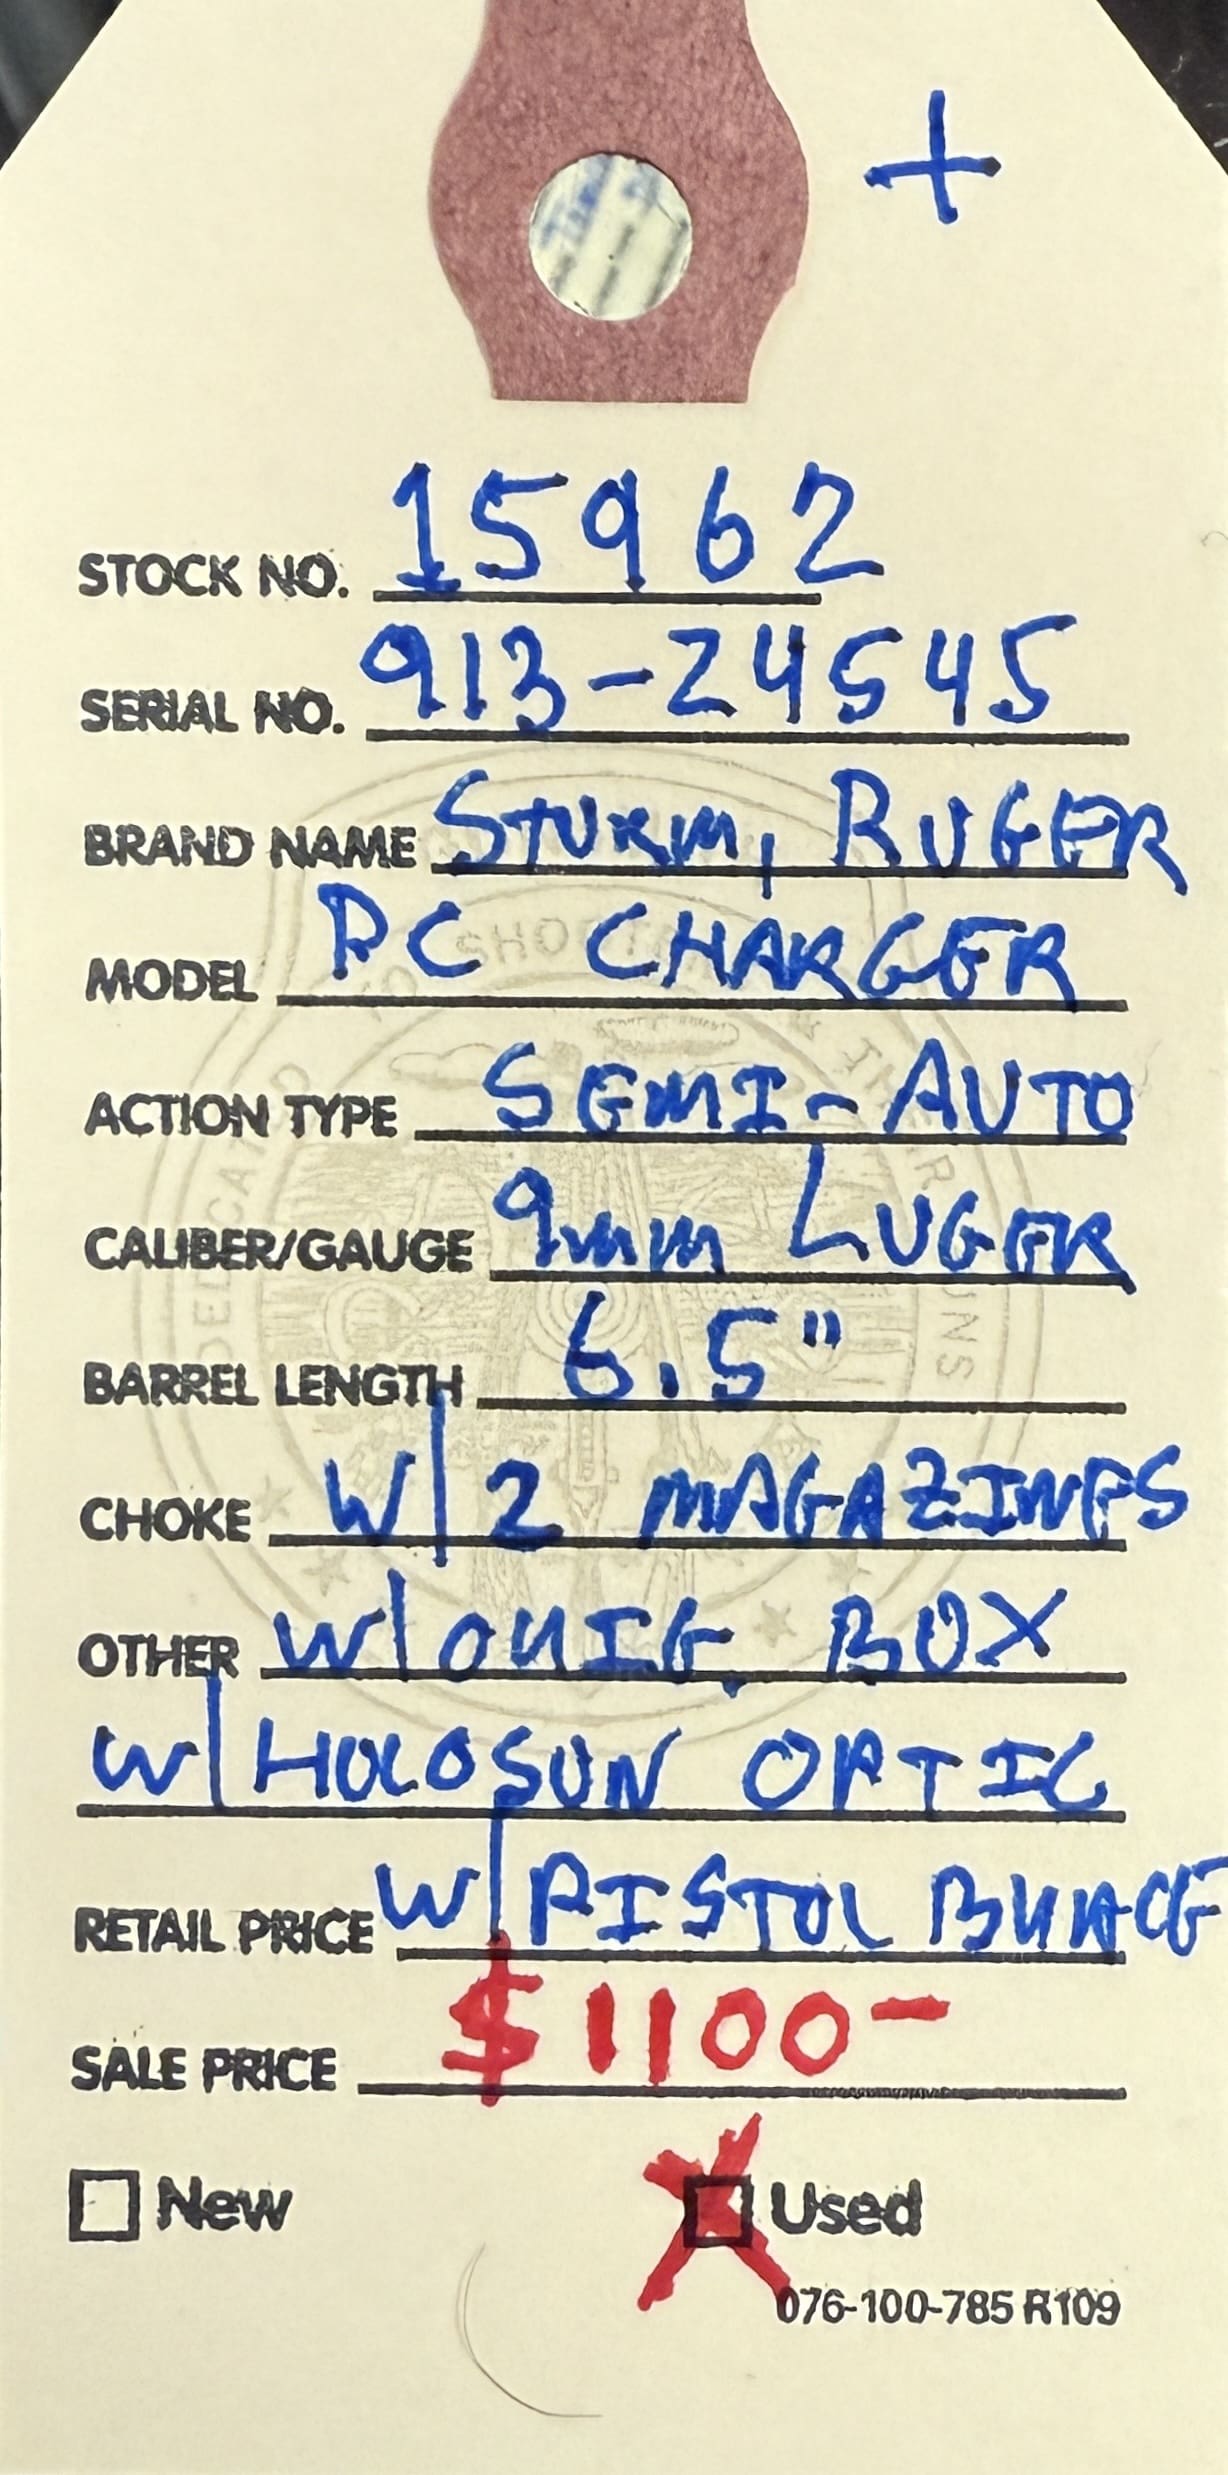 +
STOCK NO. 15962
SERIAL NO. 913-24545
BRAND NAME STURM, RUGER
MODEL PC CHARGER
ACTION TYPE SEMI-AUTO
CALIBER/GAUGE 9mm LUGER
BARREL LENGTH 6.5"
CHOKE W/2 MAGAZINES
OTHER W/ORIG. BOX
W/HOLOSUN OPTIC
RETAIL PRICE W/PISTOL BRACE
SALE PRICE $1100-
New Used
076-100-785 R109